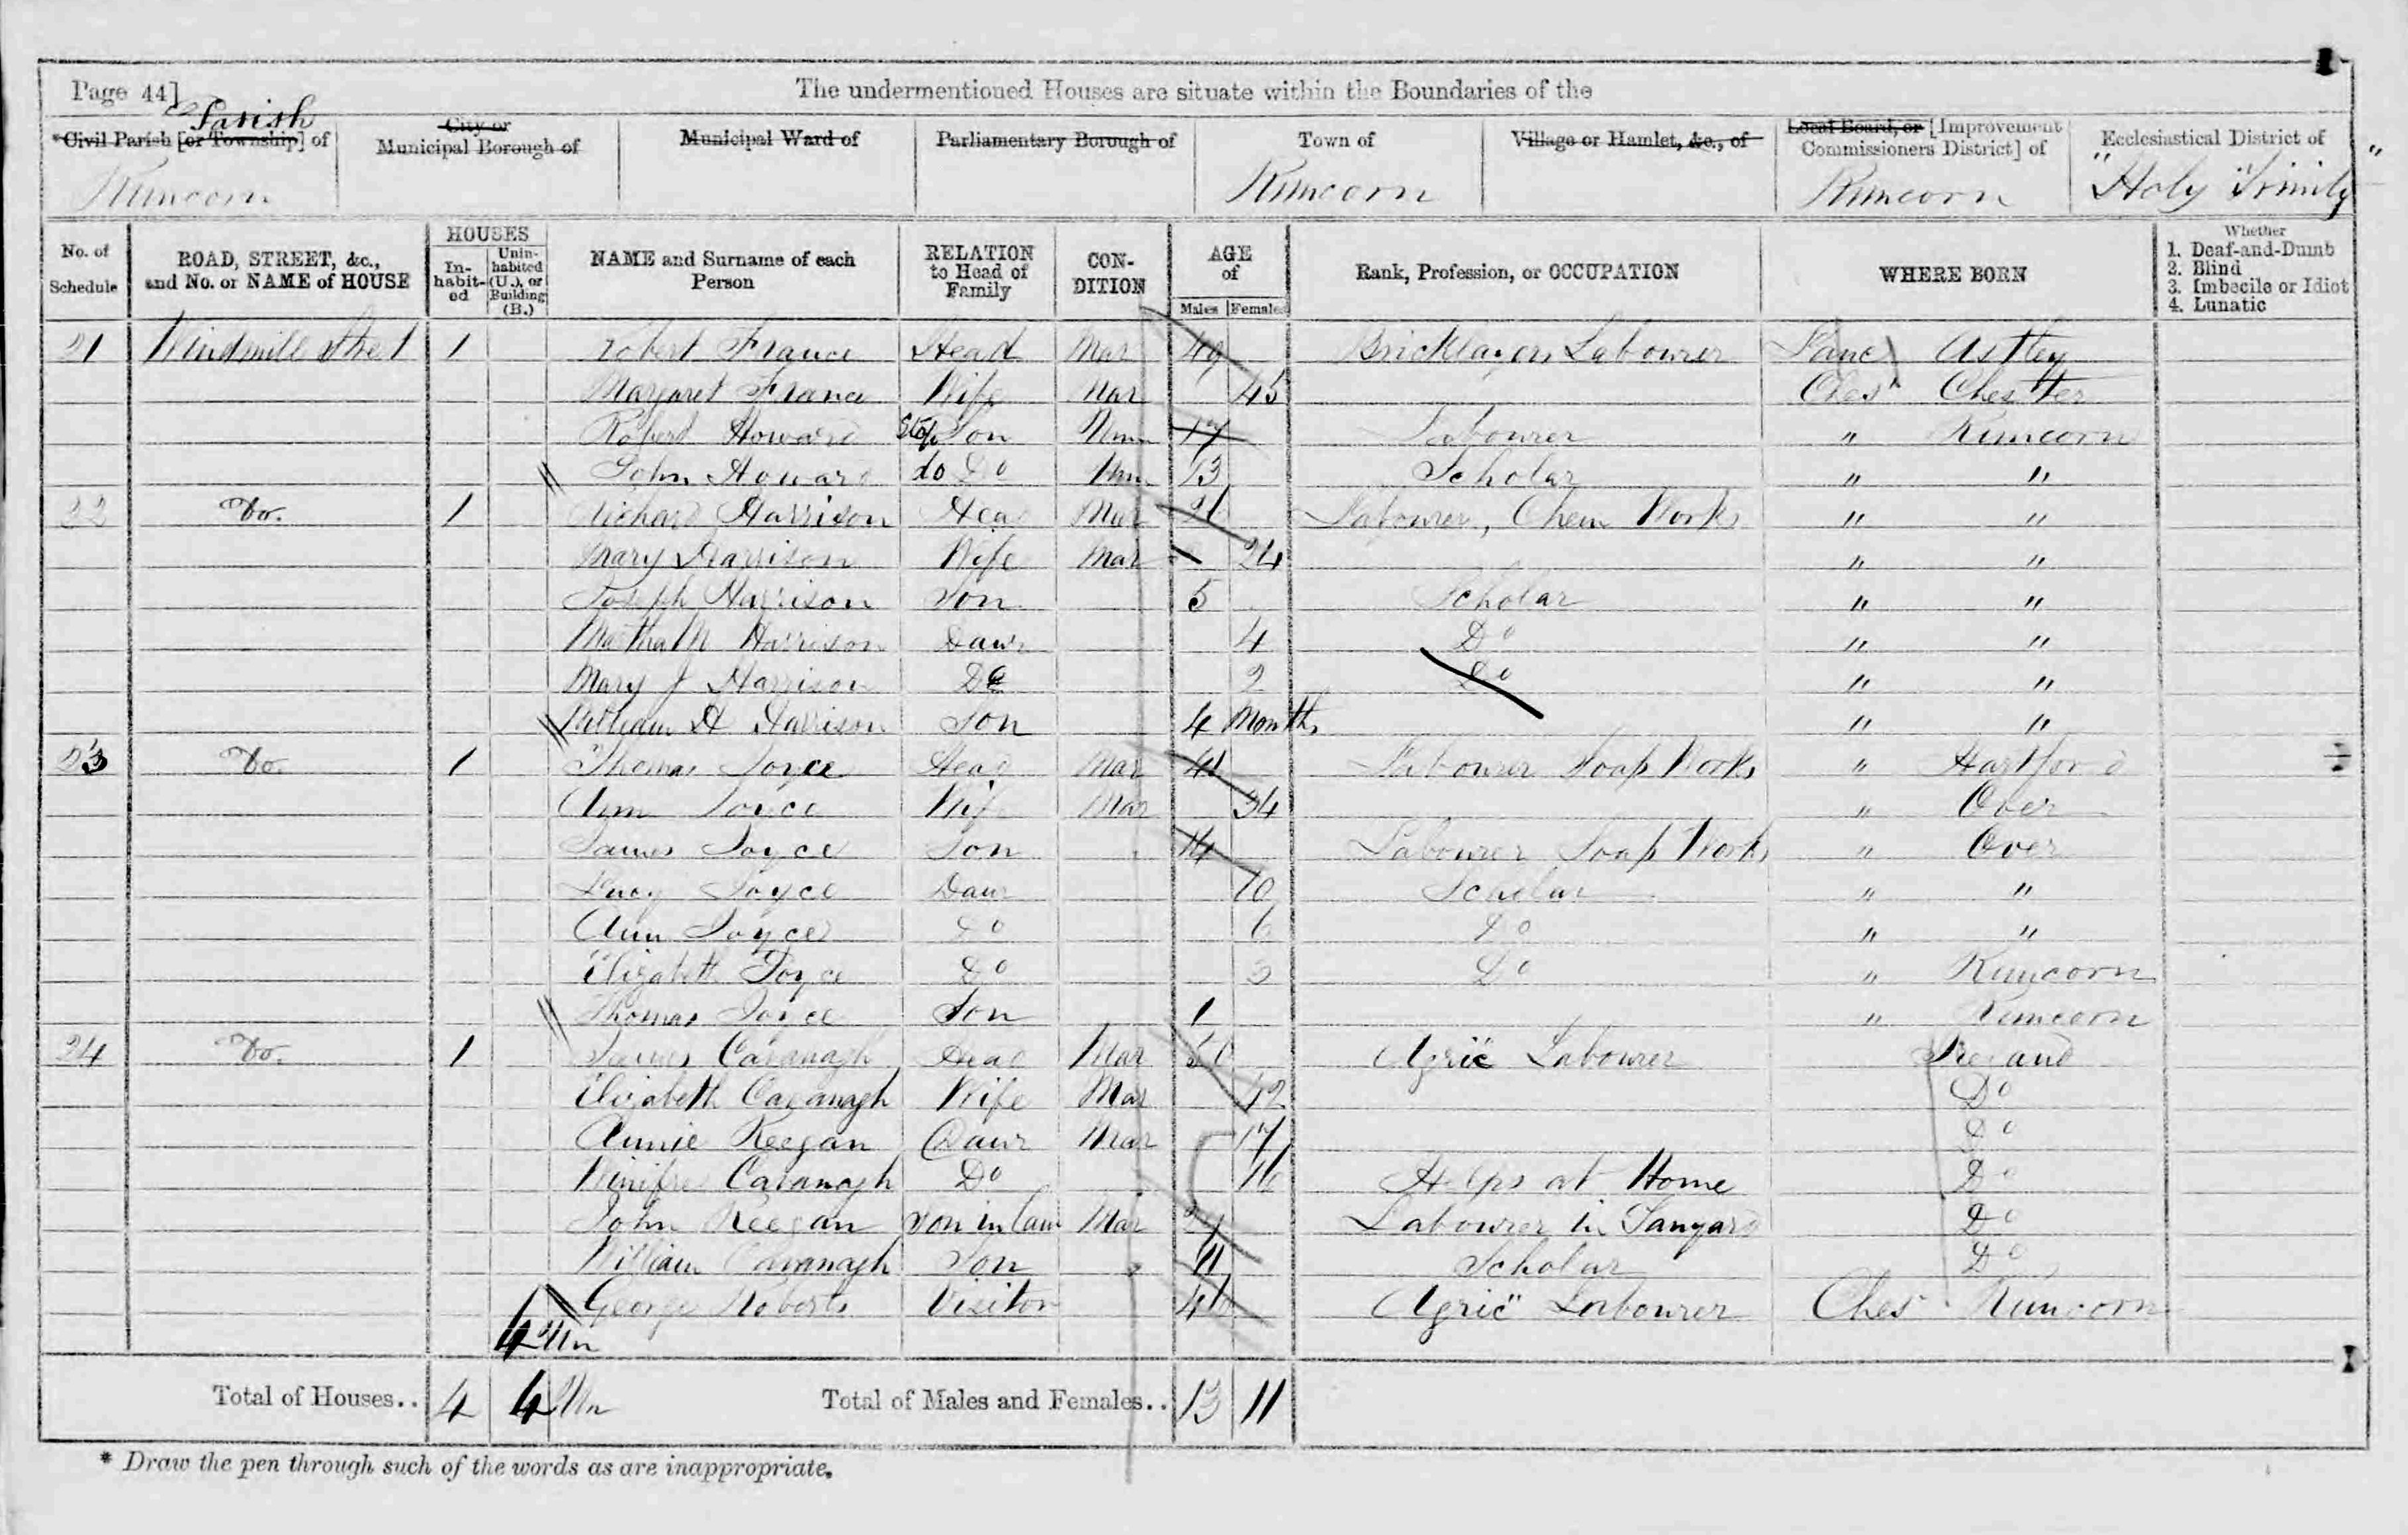 Page 44]
The undermentioned Houses are situate within the Boundaries of the
Parish
*Civil Parish [or Township] of
City or Municipal Borough of
Municipal Ward of
Parliamentary Borough of
Town of
Village or Hamlet, &c., of
Local Board, or [Improvement Commissioners District] of
Ecclesiastical District of
Runcorn Runcorn Runcorn "Holy Trinity"
No. of Schedule
ROAD, STREET, &c., and No. or NAME of HOUSE
HOUSES
Inhabited
Uninhabited (U.), or Building (B.)
NAME and Surname of each Person
RELATION to Head of Family
CONDITION
AGE of
Males Females
Rank, Profession, or OCCUPATION
WHERE BORN
Whether
1. Deaf-and-Dumb
2. Blind
3. Imbecile or Idiot
4. Lunatic
21 Windmill Street 1 Robert France Head Mar 49 Bricklayers Labourer Lanc Astley
Margaret France Wife Mar 45 Ches Chester
Robert Howard Step Son Unm 17 Labourer " Runcorn
John Howard do Do Unm 13 Scholar " "
22 Do. 1 Richard Harrison Head Mar Labourer, Chem Works " "
Mary Harrison Wife Mar 24 " "
Joseph Harrison Son 5 Scholar " "
Martha M Harrison Daur 4 Do " "
Mary J Harrison Do 2 Do " "
William H Harrison Son 4 Months " "
23 Do. 1 Thomas Joyce Head Mar 41 Labourer Soap Works " Hartford
Ann Joyce Wife Mar 34 " Over
James Joyce Son 14 Labourer Soap Works " Over
Lucy Joyce Daur 10 Scholar " "
Ann Joyce Do 6 Do " "
Elizabeth Joyce Do 3 Do " Runcorn
Thomas Joyce Son 1 " Runcorn
24 Do. 1 James Cavanagh Head Mar 50 Agric Labourer Ireland
Elizabeth Cavanagh Wife Mar 42 Do
Annie Keegan Daur Mar 17 Do
Winifred Cavanagh Do 16 Helps at Home Do
John Keegan Son in law Mar Labourer in Tanyard Do
William Cavanagh Son 11 Scholar Do
George Roberts Visitor Agric Labourer Ches Runcorn
4 Un
Total of Houses.. 4 4 Un Total of Males and Females.. 13 11
* Draw the pen through such of the words as are inappropriate.